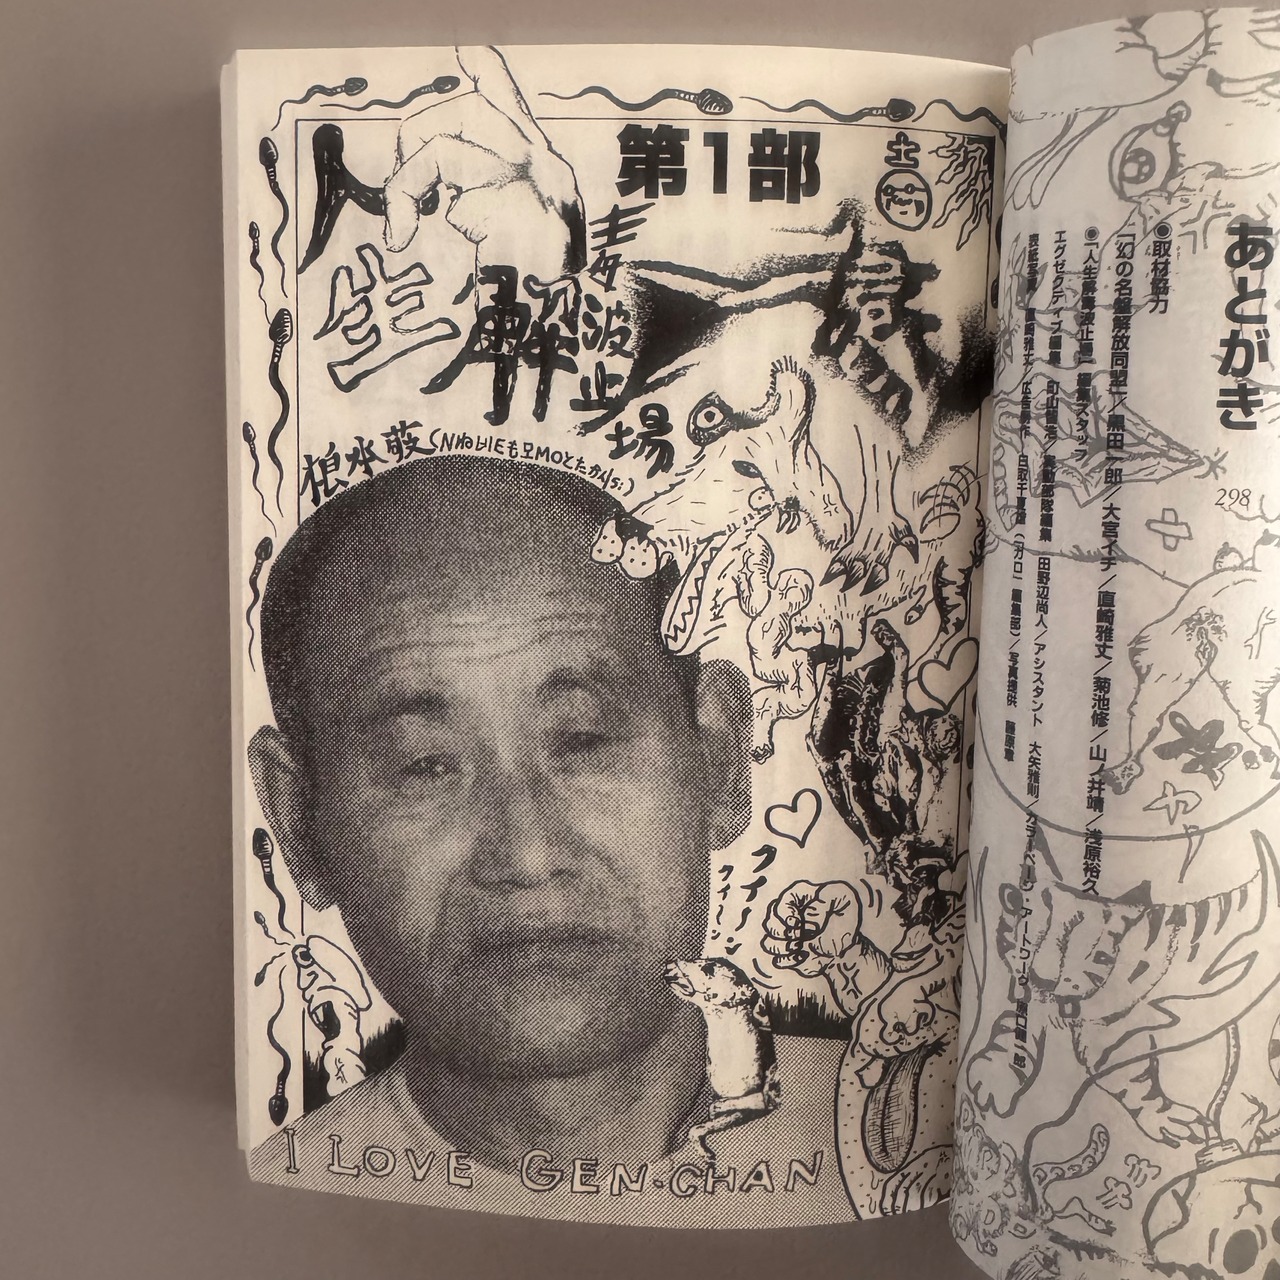 第1部
人生解毒波止場
根本敬
I LOVE GEN-CHAN
クイ〜ン
クイ〜ン
あとがき
298
●取材協力
「幻の名盤解放同盟」/黒田一郎/大宮イチ/直崎雅丈/菊池修/山ノ井靖/浅原裕久
●「人生解毒波止場」編集スタッフ
エグゼクティブ編集 町山智浩/
田野辺尚人/アシスタント 大矢雅則/カラーページ・アートワーク 原口健一郎
表紙写真 直崎雅丈/広告制作 白取千夏雄(「ガロ」編集部)/写真提供 藤原章